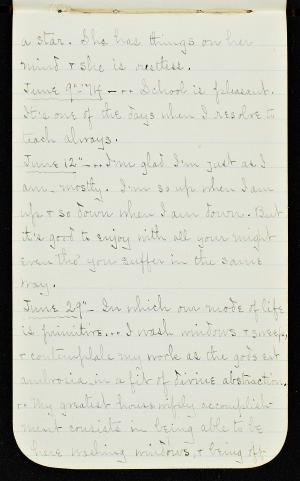 a star. She has things on her
mind & she is restless.
June 9" '74 – .. School is pleasant.
It's one of the days when I resolve to
teach always.
June 12" – .. I'm glad I'm just as I
am mostly. I'm so up when I am
up & so down when I am down. But
it's good to enjoy with all your might
even tho' you suffer in the same
way.
June 29" – In which our mode of life
is primitive... I wash windows & sweep,
& contemplate my work as the gods eat
ambrosia, in a fit of divine abstraction.
.. My greatest housewifely accomplish-
ment consists in being able to be
here washing windows, & being off